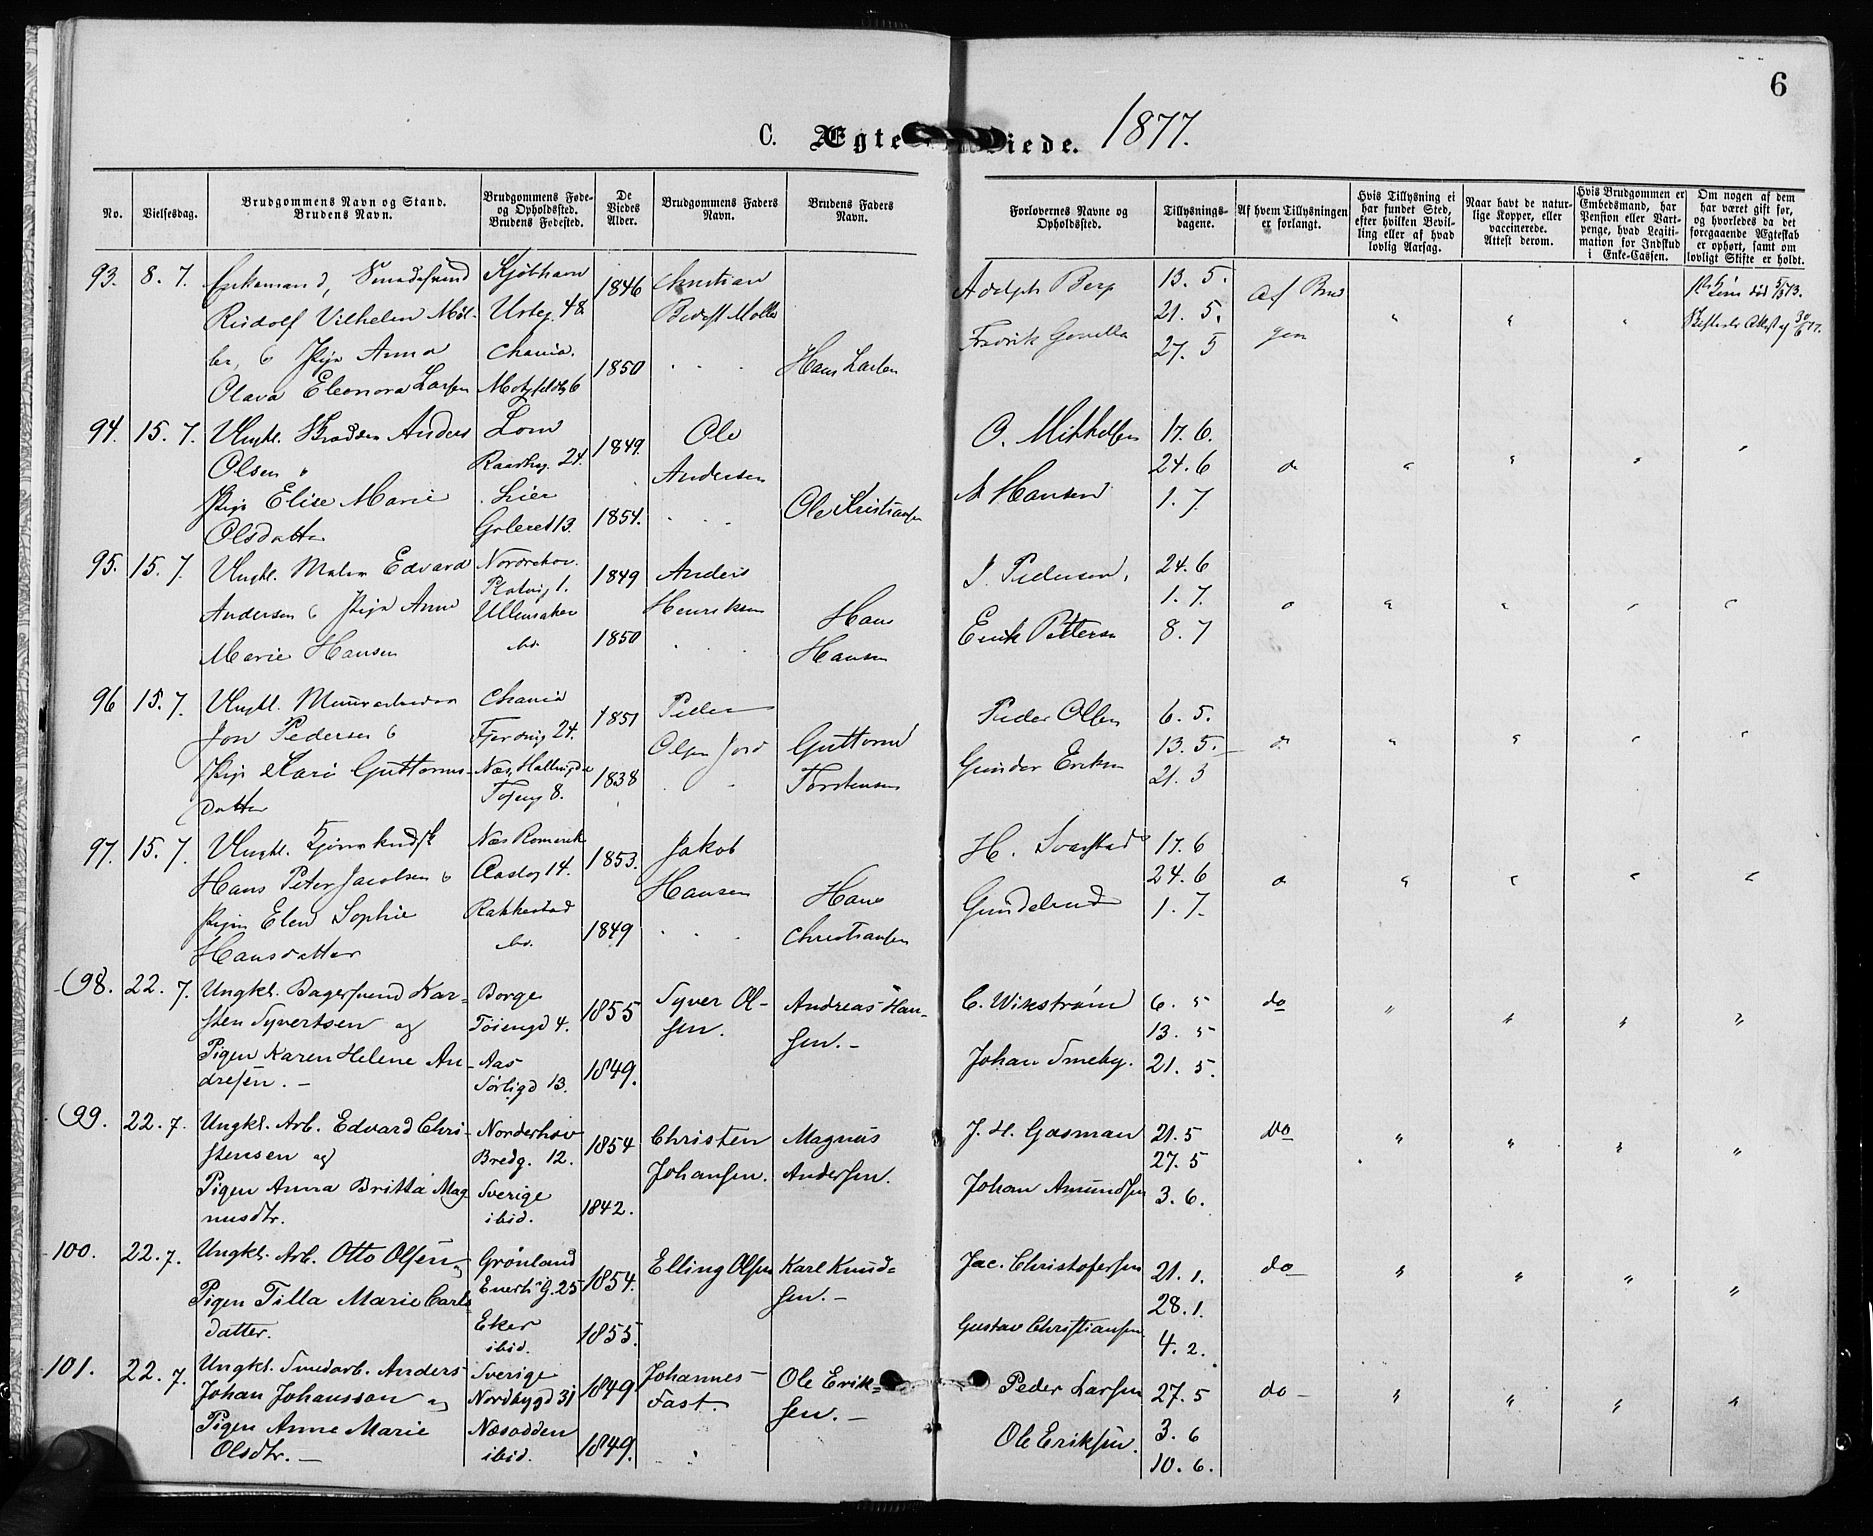 6
C. Ægte Viede. 1877.
No.
Vielsesdag.
Brudgommens Navn og Stand.
Brudens Navn.
Brudgommens Føde-
og Opholdsted.
Brudens Fødested.
De
Viedes
Alder.
Brudgommens Faders
Navn.
Brudens Faders
Navn.
Forlovernes Navne og
Opholdsted.
Tillysnings-
dagene.
Af hvem Tillysningen
er forlangt.
Hvis Tillysning ei
har fundet Sted,
efter hvilken Bevil-
ling eller af hvad
lovlig Aarsag.
Naar havt de natur-
lige Kopper, eller
vaccinerede.
Attest derom.
Hvis Brudgommen er
Embedsmand, har
Pension eller Vart-
penge, hvad Legiti-
mation for Indskud
i Enke-Cassen.
Om nogen af dem
har været gift før,
og hvorledes da det
foregaaende Ægteskab
er ophørt, samt om
lovligt Skifte er holdt.
93. 8. 7. Enkemand, Smedesvend Kjøbhavn 1846 Christian Adolph Berg 13. 5. Af Brud
Rudolf Vilhelm Møl- 48 21. 5. gom
ler, & Pige Anna Chania. 1850 Hans Larsen Fredrik 27. 5
Olava Eleonora Larsen Motzfeldtg 6
94. 15. 7. Ungkl. Anders Lom 1849. Ole O. Mikkelsen 17. 6.
Olsen 24. Andersen 24. 6 do
Pige Elise Marie Lier 1854. Ole Kristiansen Hansen 1. 7.
Olsdatter 13.
95. 15. 7. Ungkl. Edvard Norderhov. 1849 Anders Pedersen, 24. 6
Andersen & Pige Anne Ullensaker Henriksen Hans 1. 7.
Marie Hansen do. 1850 Hansen Erik Pettersen 8. 7
96 15. 7. Ungkl. Murarbeider Chania 1851 Peder Peder Olsen 6. 5.
Jon Pedersen & 24. Olsen Guttorm 13. 5. do
Pige Kari Guttorms- Næs, 1838 Torstensen Gunder Eriksen 21. 5
datter 8.
97. 15. 7. Ungkl. Næs Romerik 1853. Jakob H. Svarstad 17. 6
Hans Peter Jacobsen & 14. Hansen Hans 24. 6 do
Pigen Elen Sophie Rakkestad 1849 Christiansen Gundelund 1. 7.
Hansdatter do.
98. 22. 7. Ungkl. Bagersvend Kar- Borge 1855 Syver Ol- Andreas Han- C. Wikstrøm 6. 5 do
sten Syvertsen og Tøiengd 4. sen. sen. – 13. 5
Pigen Karen Helene An- Aas 1849. Johan Smeby. 21. 5.
dresen. – Sørligd 13.
99. 22. 7. Ungkl. Arb. Edvard Chri- Norderhov 1854 Christen Magnus J. H. Gasman 21. 5 do
stensen og Bredg. 12. Johansen. Andersen. 27. 5
Pigen Anna Britta Mag Sverige 1842. Johan Amundsen 3. 6.
nusdtr. ibid.
100. 22. 7. Ungkl. Arb. Otto Olsen og Grønland 1854. Elling Olsen Karl Knud- Jac. Christofersen 21. 1. do
Pigen Tilla Marie Carls Enerh. G. 25 sen. – 28. 1.
datter. Eker 1855. Gustav Christiansen 4. 2.
ibid.
101. 22. 7. Ungkl. Smedarb. Anders Sverige 1849 Johannes Ole Erik- Peder Larsen 27. 5 do –
Johan Johansson og Nordbygd 31 Fast. sen. – 3. 6
Pigen Anne Marie Næsodden 1849. Ole Eriksen. 10. 6.
Olsdtr. – ibid.